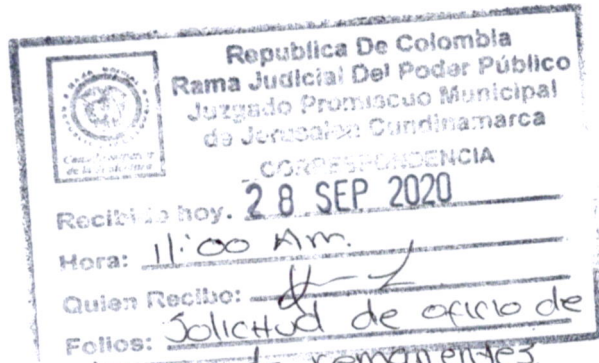 Republica De Colombia
Rama Judicial Del Poder Público
Juzgado Promiscuo Municipal
de Jerusalen Cundinamarca
CORRESPONDENCIA
Recibido hoy. 28 SEP 2020
Hora: 11:00 Am.
Quien Recibo:
Folios: Solicitud de oficio de
remanentes